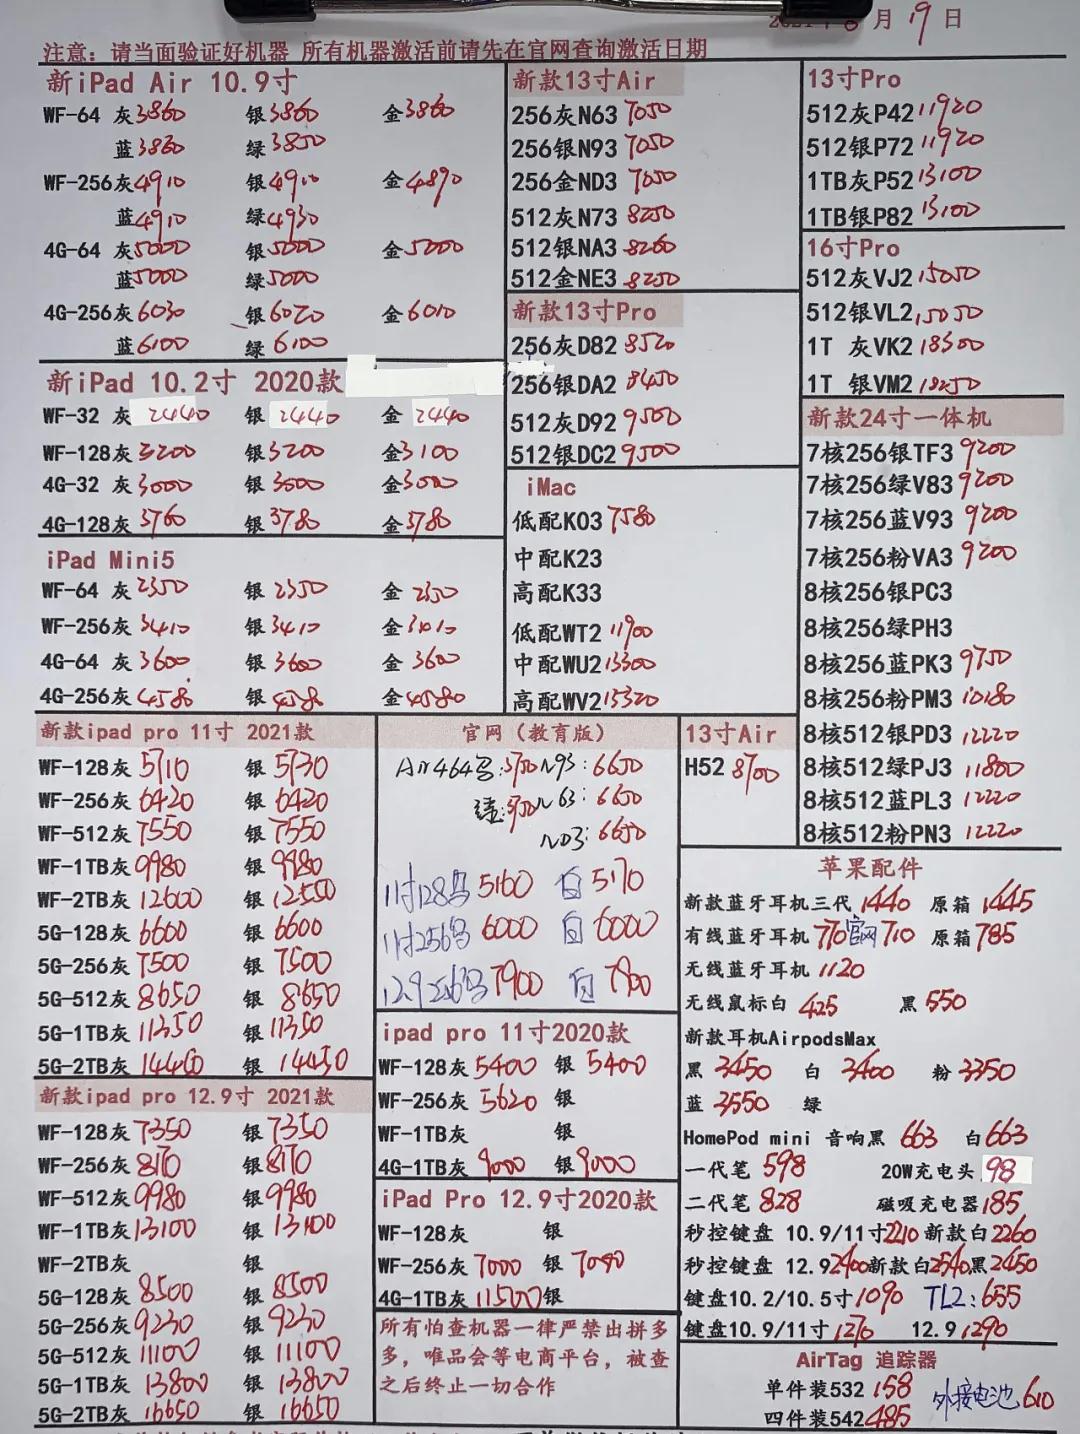 月19日
注意：请当面验证好机器 所有机器激活前请先在官网查询激活日期
新iPad Air 10.9寸
WF-64 灰3860 银3860 金3860
蓝3860 绿3850
WF-256灰4910 银4910 金4890
蓝4910 绿4930
4G-64 灰5000 银5000 金5000
蓝5000 绿5000
4G-256灰6030 银6020 金6010
蓝6100 绿6100
新iPad 10.2寸 2020款
WF-32 灰2440 银2440 金2440
WF-128灰3200 银3200 金3100
4G-32 灰3000 银3000 金3000
4G-128灰3760 银3780 金3780
iPad Mini5
WF-64 灰2350 银2350 金2350
WF-256灰3410 银3410 金3410
4G-64 灰3600 银3600 金3600
4G-256灰4580 银4580 金4580
新款13寸Air
256灰N63 7050
256银N93 7050
256金ND3 7050
512灰N73 8250
512银NA3 8260
512金NE3 8250
新款13寸Pro
256灰D82 8520
256银DA2 8450
512灰D92 9500
512银DC2 9500
iMac
低配K03 7580
中配K23
高配K33
低配WT2 11900
中配WU2 13300
高配WV2 15320
13寸Pro
512灰P42 11920
512银P72 11920
1TB灰P52 13100
1TB银P82 13100
16寸Pro
512灰VJ2 15050
512银VL2 15050
1T 灰VK2 18300
1T 银VM2 18250
新款24寸一体机
7核256银TF3 9200
7核256绿V83 9200
7核256蓝V93 9200
7核256粉VA3 9200
8核256银PC3
8核256绿PH3
8核256蓝PK3 9750
8核256粉PM3 10180
8核512银PD3 12220
8核512绿PJ3 11800
8核512蓝PL3 12220
8核512粉PN3 12220
新款ipad pro 11寸 2021款
WF-128灰5710 银5730
WF-256灰6420 银6420
WF-512灰7550 银7550
WF-1TB灰9980 银9980
WF-2TB灰12600 银12550
5G-128灰6600 银6600
5G-256灰7500 银7500
5G-512灰8650 银8650
5G-1TB灰11350 银11350
5G-2TB灰14460 银14450
新款ipad pro 12.9寸 2021款
WF-128灰7350 银7350
WF-256灰8170 银8170
WF-512灰9980 银9980
WF-1TB灰13100 银13100
WF-2TB灰 银
5G-128灰8500 银8500
5G-256灰9230 银9230
5G-512灰11100 银11100
5G-1TB灰13800 银13800
5G-2TB灰16650 银16650
官网（教育版）
N93:6650
N63:6650
ND3:6650
11寸128 5160 白5170
11寸256 6000 白6000
12.9 256 7900 白7900
ipad pro 11寸2020款
WF-128灰5400 银5400
WF-256灰5620 银
WF-1TB灰 银
4G-1TB灰9000 银9000
iPad Pro 12.9寸2020款
WF-128灰 银
WF-256灰7000 银7000
4G-1TB灰11500银
所有怕查机器一律严禁出拼多
多，唯品会等电商平台，被查
之后终止一切合作
13寸Air
H52 8700
苹果配件
新款蓝牙耳机三代1440 原箱1445
有线蓝牙耳机770官网710 原箱785
无线蓝牙耳机1120
无线鼠标白 425 黑550
新款耳机AirpodsMax
黑3450 白3400 粉3350
蓝3550 绿
HomePod mini 音响黑663 白663
一代笔598 20W充电头98
二代笔828 磁吸充电器185
秒控键盘 10.9/11寸2210新款白2260
秒控键盘 12.9 2400新款白2540黑2450
键盘10.2/10.5寸1090 TL2:655
键盘10.9/11寸1270 12.9 1290
AirTag 追踪器
单件装532 158 外接电池610
四件装542 485